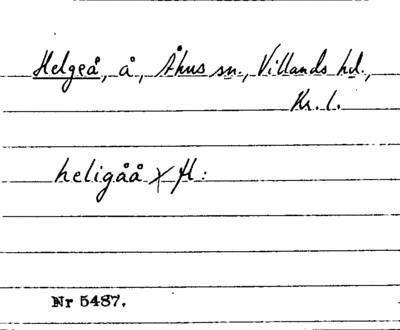 Helgeå, å, Åhus sn., Villands hd.,
Kr. l.
heligåå
Nr 5487.